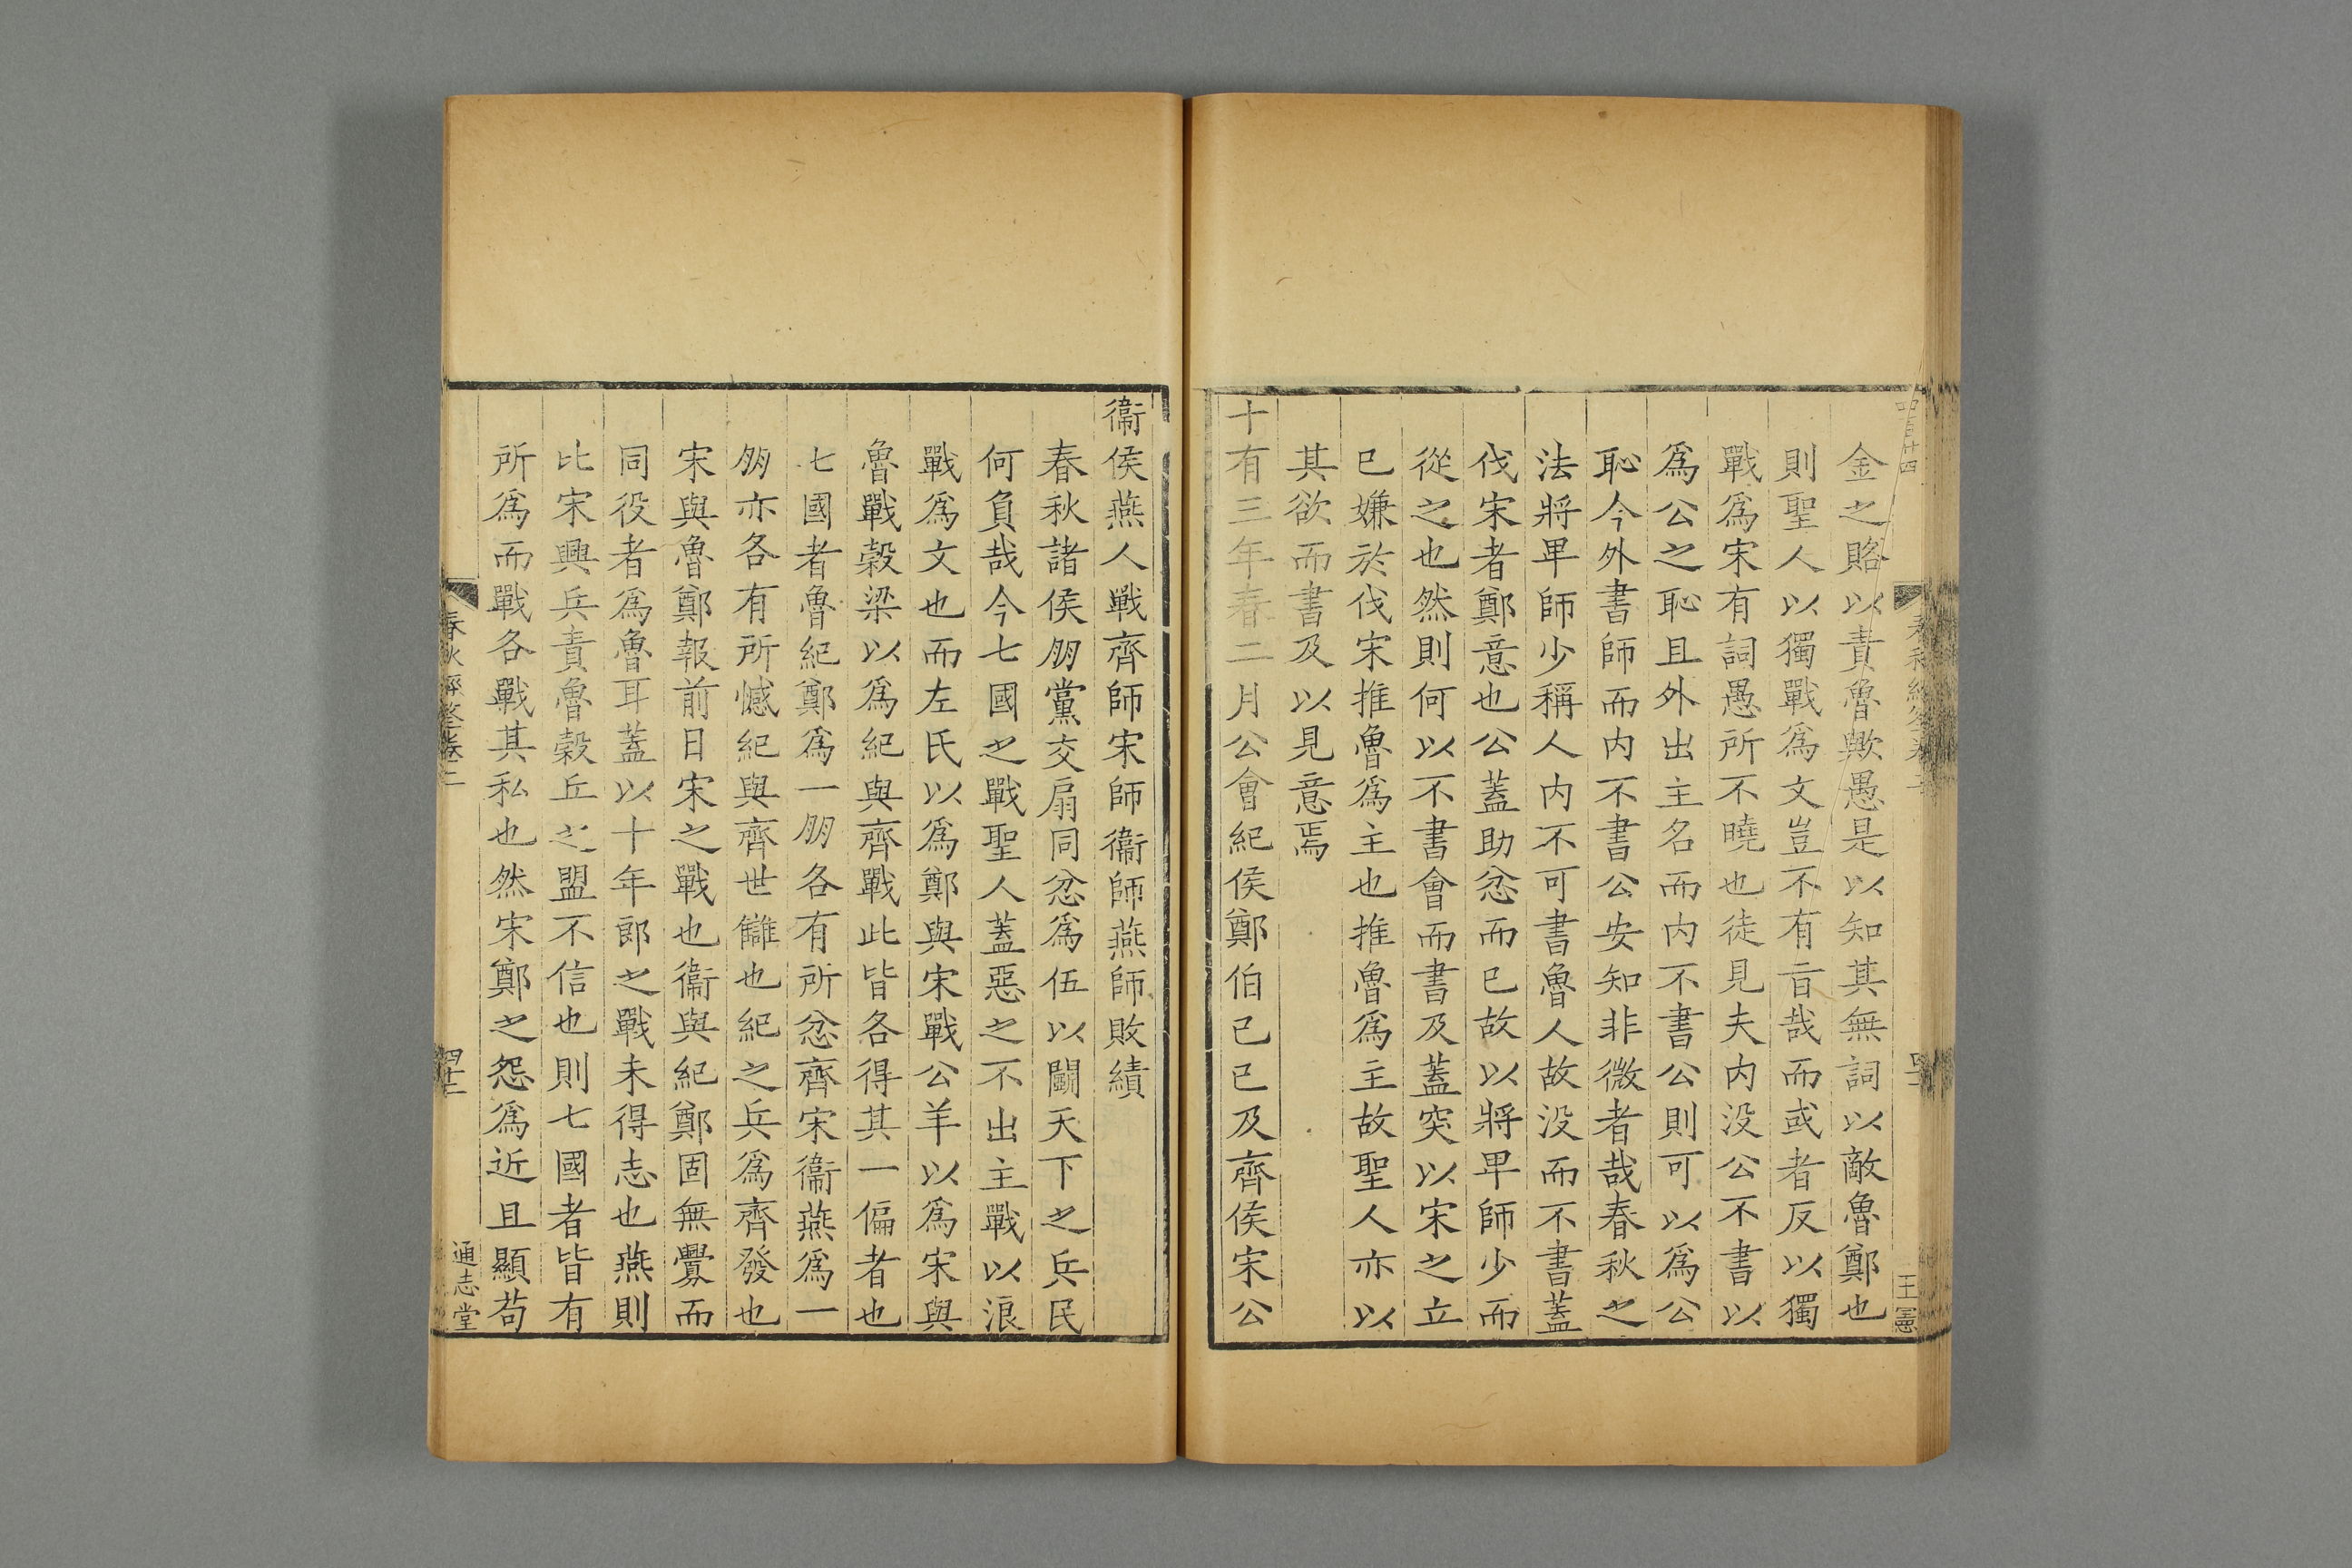 金之賂以責魯歟愚是以知其無詞以敵魯鄭也
則聖人以獨戰爲文豈不有旨哉而或者反以獨
戰爲宋有詞愚所不曉也徒見夫内没公不書以
爲公之恥且外出主名而内不書公則可以爲公
恥今外書師而内不書公安知非微者哉春秋之
法將卑師少稱人内不可書魯人故没而不書蓋
伐宋者鄭意也公蓋助忿而已故以將卑師少而
從之也然則何以不書會而書及蓋突以宋之立
已嫌於伐宋推魯爲主也推魯爲主故聖人亦以
其欲而書及以見意焉
十有三年春二月公會紀侯鄭伯己巳及齊侯宋公
衞侯燕人戰齊師宋師衞師燕師敗績
春秋諸侯朋黨交扇同忿爲伍以鬭天下之兵民
何負哉今七國之戰聖人蓋惡之不出主戰以浪
戰爲文也而左氏以爲鄭與宋戰公羊以爲宋與
魯戰穀梁以爲紀與齊戰此皆各得其一偏者也
七國者魯紀鄭爲一朋各有所忿齊宋衞燕爲一
朋亦各有所憾紀與齊世讎也紀之兵爲齊發也
宋與魯鄭報前日宋之戰也衞與紀鄭固無釁而
同役者爲魯耳蓋以十年郎之戰未得志也燕則
比宋興兵責魯穀丘之盟不信也則七國者皆有
所爲而戰各戰其私也然宋鄭之怨爲近且顯苟
春秋經筌卷二
四十二
通志堂
王憲